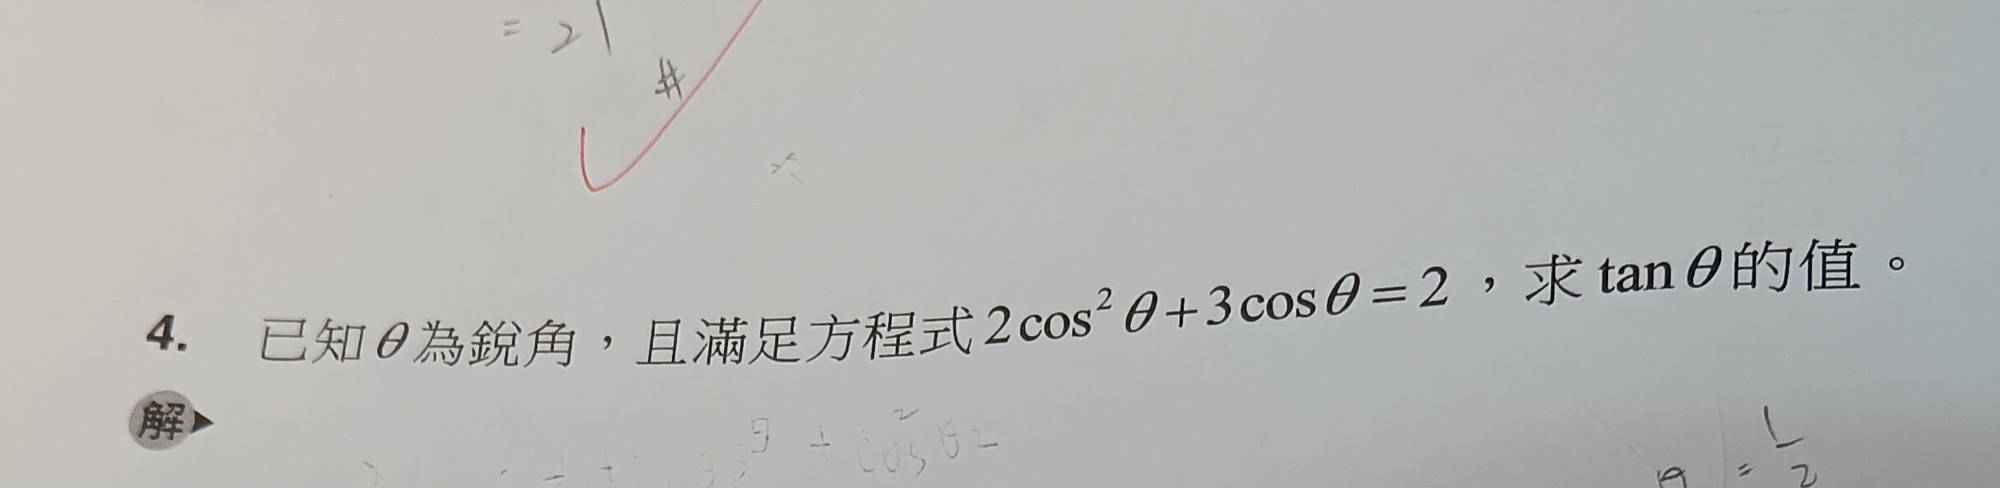 = 21
#
4. 已知θ為銳角，且滿足方程式2cos²θ+3cosθ=2，求tanθ的值。
解▶
θ + cos²θ =
= 1/2